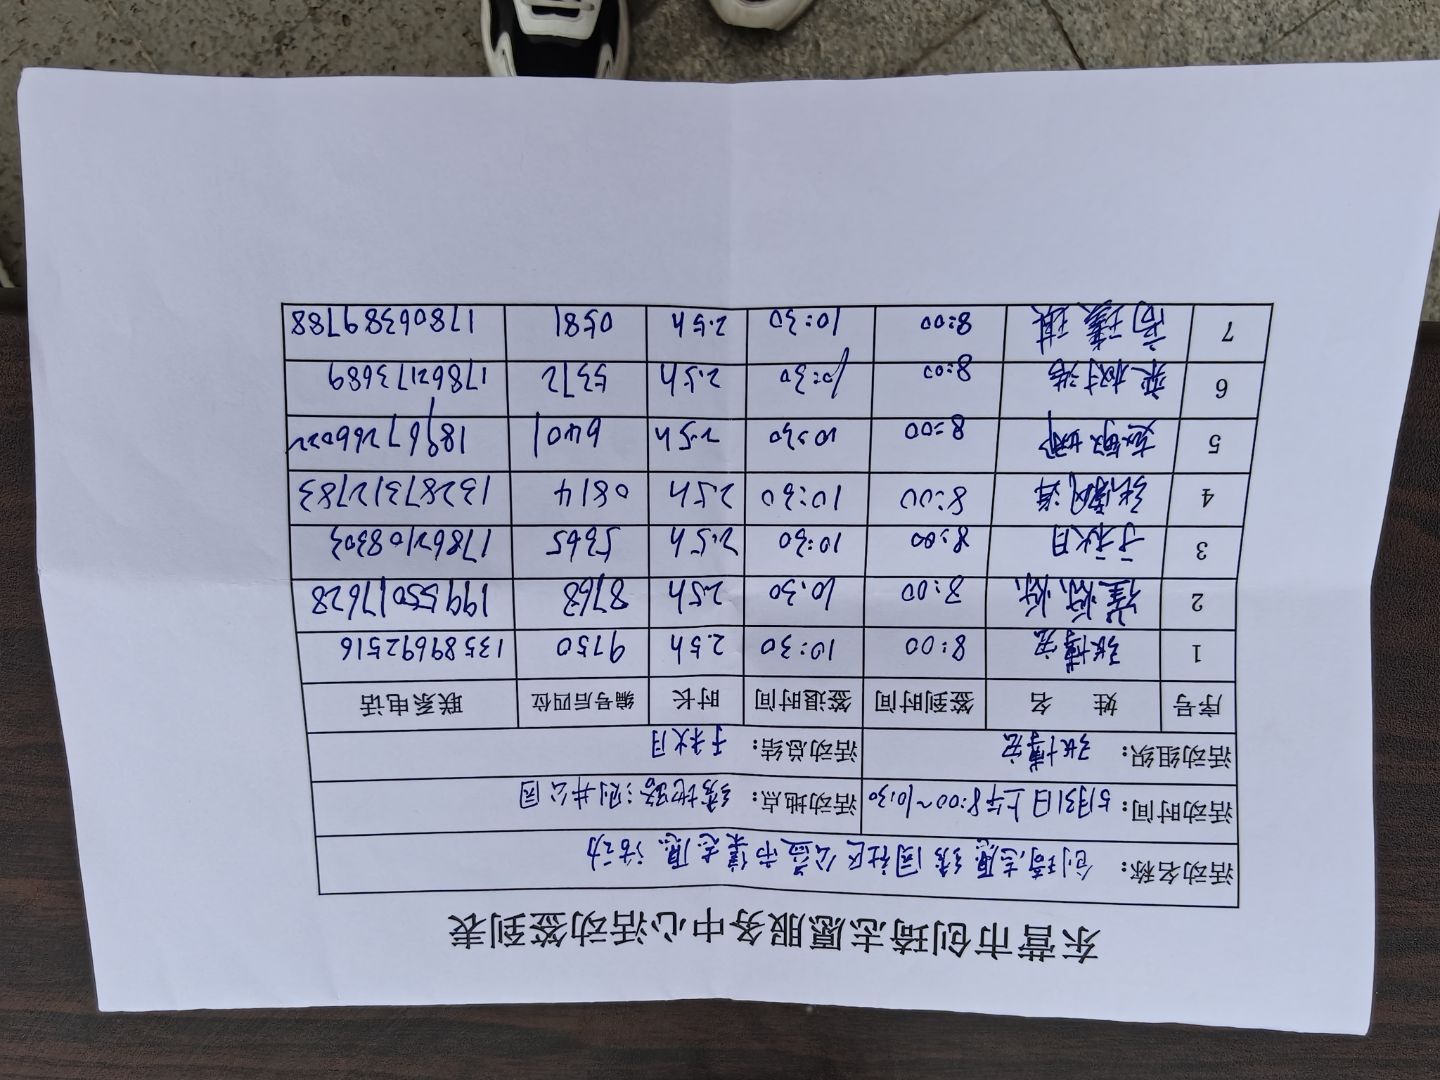 东营市创琦志愿服务中心活动签到表
活动名称： 创琦志愿绣园社区公益市集志愿活动
活动时间： 5月31日上午8:00~10:30 活动地点： 绣地路测井公园
活动组织： 张博宏 活动总结： 于秋月
序号 姓 名 签到时间 签退时间 时长 编号后四位 联系电话
1 张博宏 8:00 10:30 2.5h 9750 13589692516
2 8:00 10:30 2.5h 8768 19955017628
3 于秋月 8:00 10:30 2.5h 5365 17862108303
4 8:00 10:30 2.5h 0814 13287312783
5 8:00 10:30 2.5h 6401
6 8:00 10:30 2.5h 5372 17862173689
7 8:00 10:30 2.5h 0581 17806389788